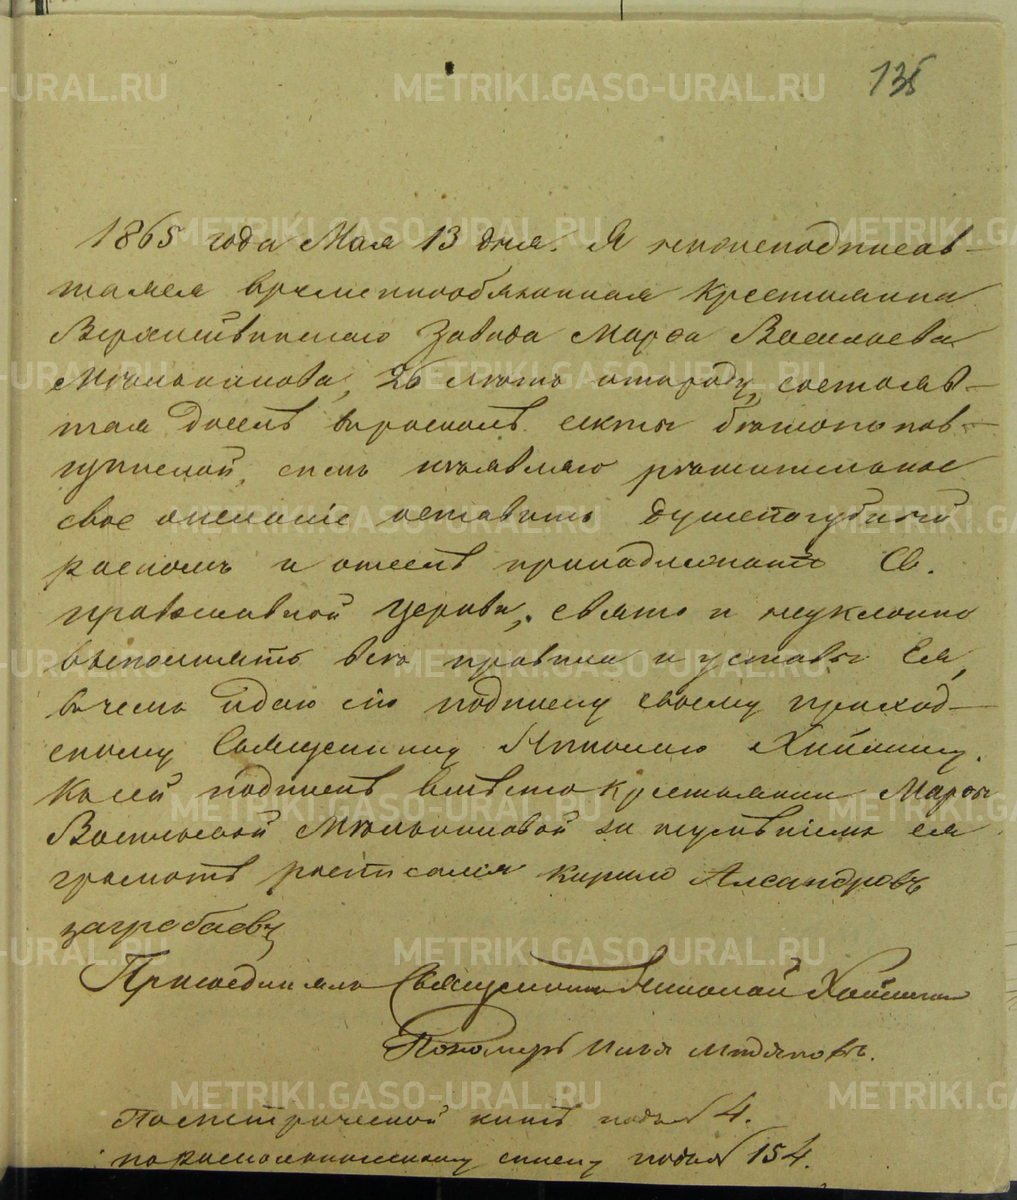 135
1865 года Мая 13 дня. Я нижеподписав-
шаяся временнообязанная крестьянка
Верхнетвинскаго Завода Марфа Васильева
26 лет отроду, состояв-
шая досель врасколь секты беглопопов-
щинской, симъ изъявляю решительное
свое желаніе оставить душепагубный
расколъ и отсель принадлежать Св.
православной Церкви, свято и неуклонно
выполнять все правила и уставы Ея,
вчемъ и даю сію подписку своему приход-
скому Священнику Николаю
Ксей подпискѣ вмѣсто крестьянки Марфы
Васильевой за неумѣніемъ ея
грамотѣ росписался Кирило Алсандровъ
загребаевъ
Присоединялъ Священникъ Николай
Пономарь Илія
Пометрической книгѣ подъ № 4.
пораскольническому списку подъ № 154.
METRIKI.GASO-URAL.RU